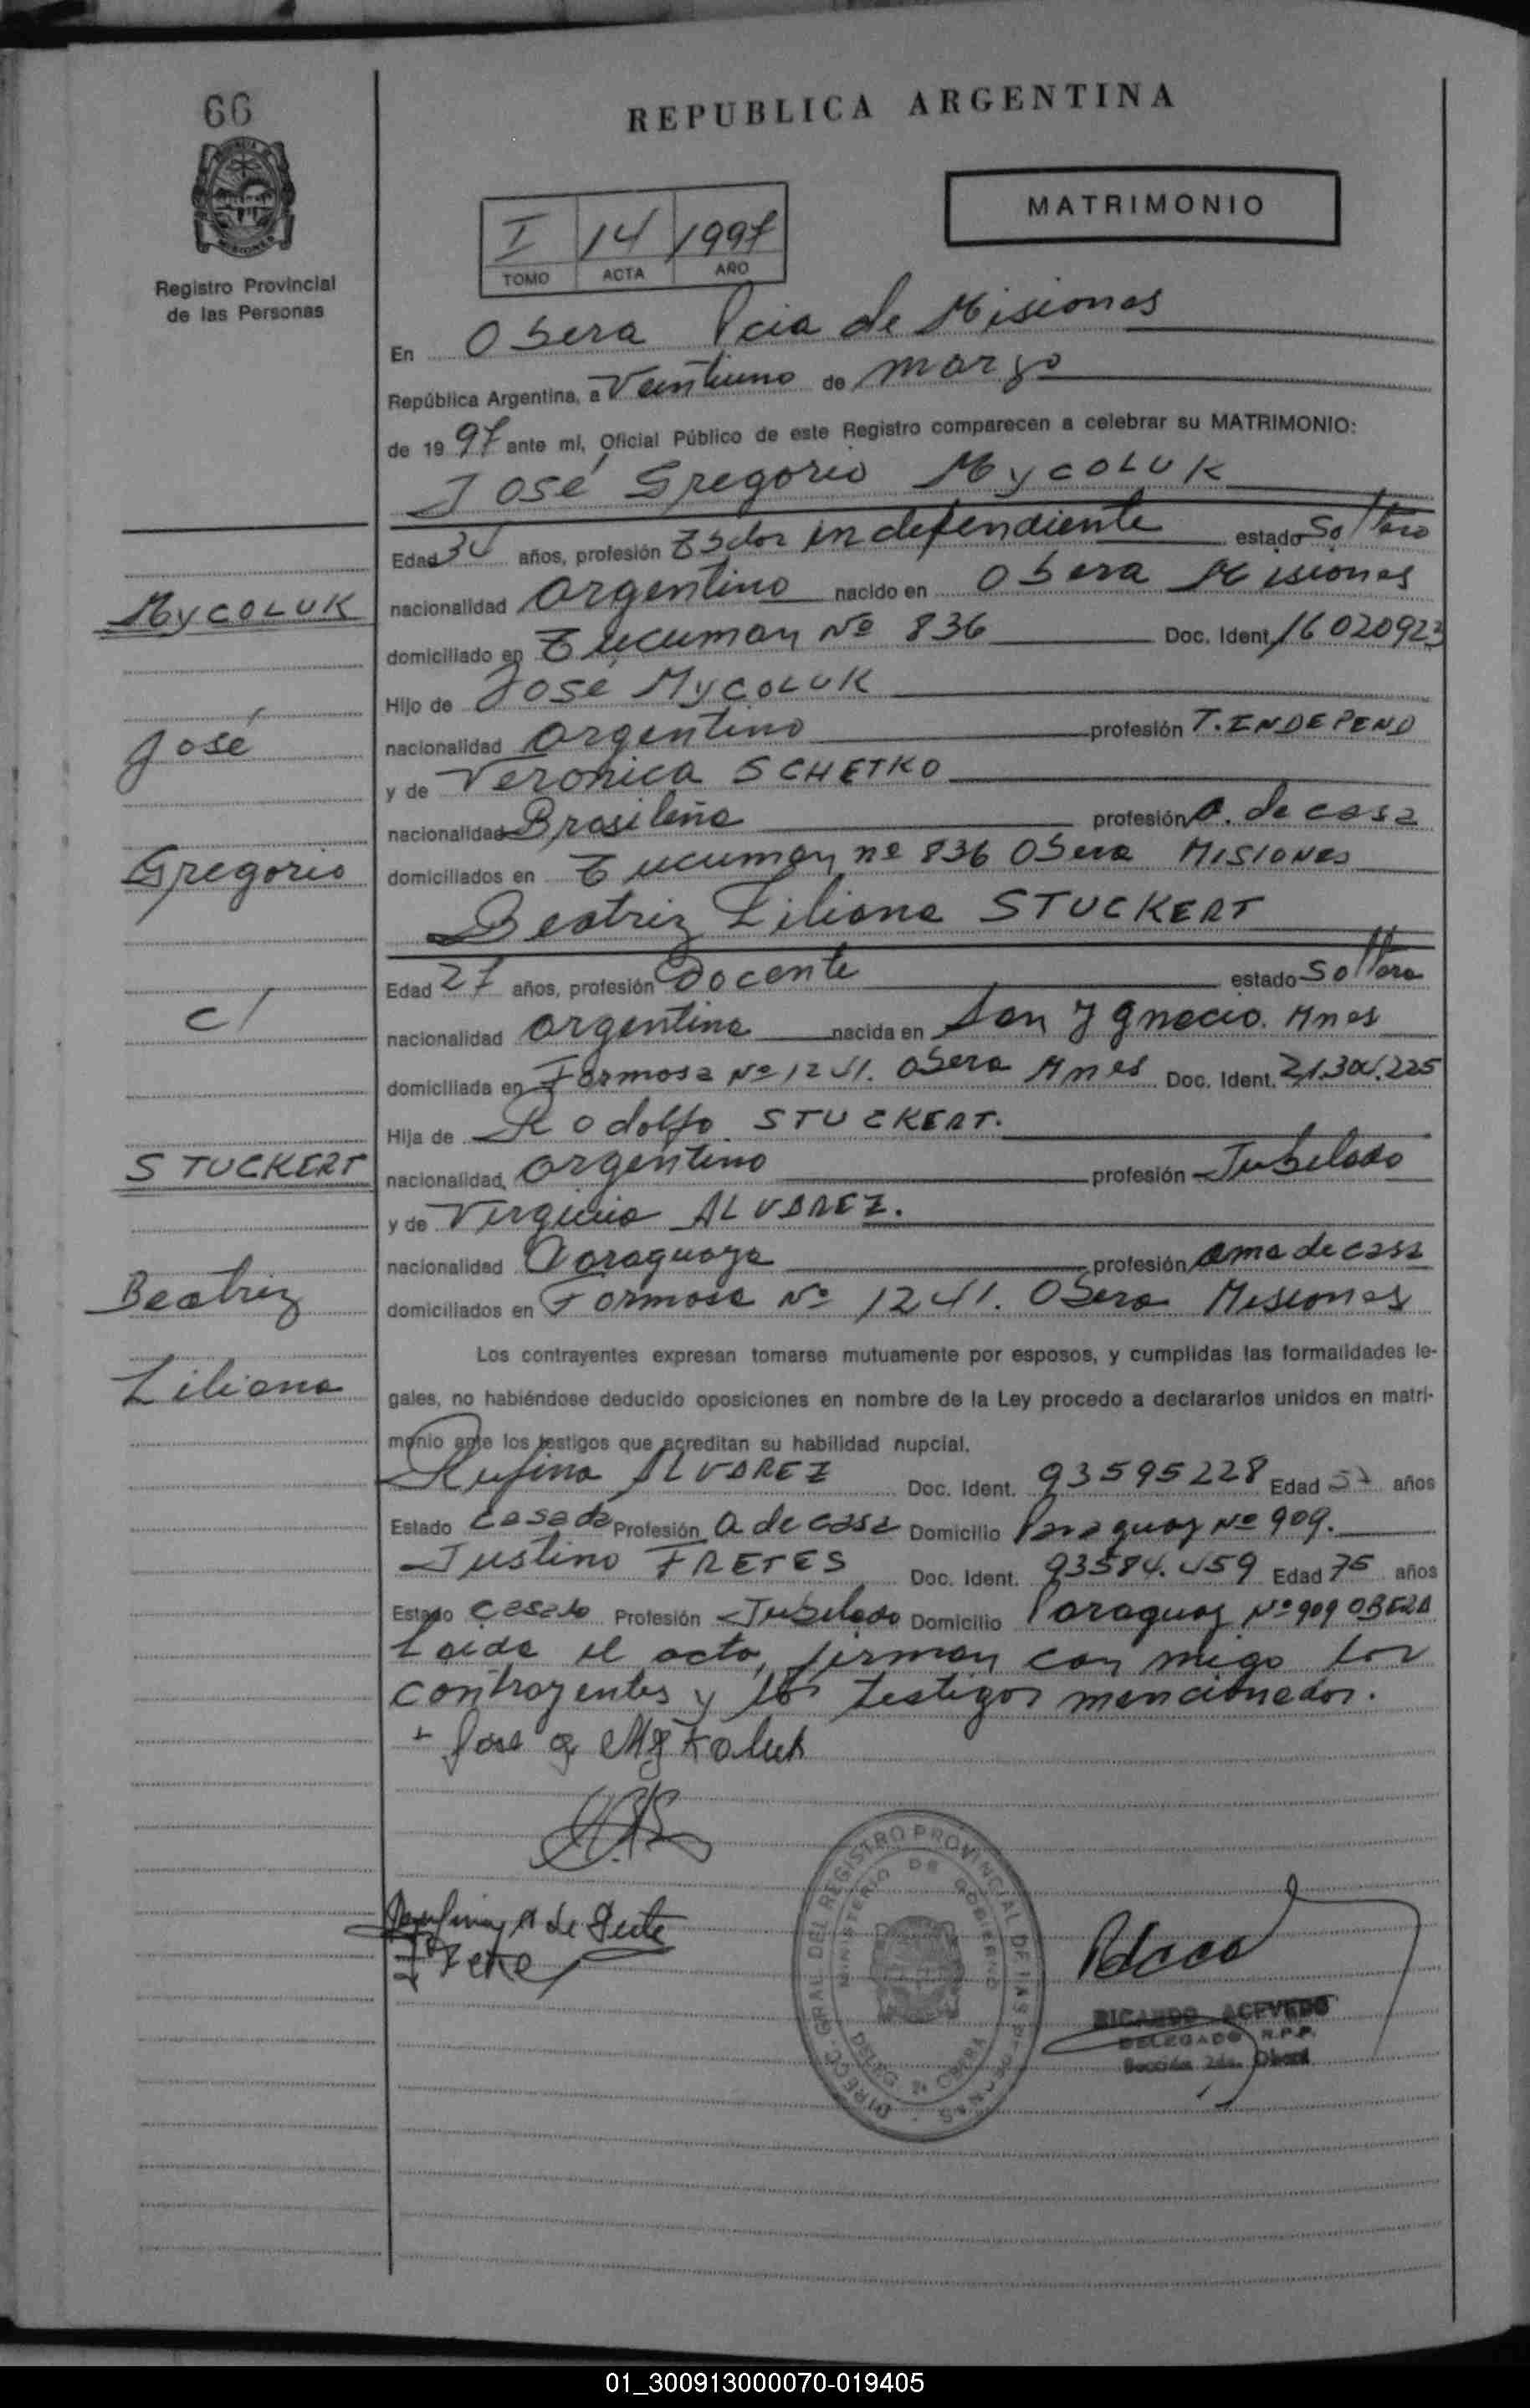 66
REPUBLICA ARGENTINA
MATRIMONIO
I 14 1997
TOMO ACTA AÑO
Registro Provincial
de las Personas
En Obera Pcia de Misiones
República Argentina, a Veintiuno de marzo
de 1997 ante mí, Oficial Público de este Registro comparecen a celebrar su MATRIMONIO:
José Gregorio MYCOLUK
Edad 34 años, profesión Tador independiente estado Soltero
MYCOLUK
nacionalidad argentino nacido en Obera Misiones
domiciliado en Tucuman Nº 836 Doc. Ident. 16020923
Hijo de Jose MYCOLUK
José
nacionalidad argentino profesión T. INDEPEND
y de Veronica SCHETKO
nacionalidad Brasileña profesión A. de casa
Gregorio
domiciliados en Tucuman nº 836 Obera MISIONES
Beatriz Liliana STUCKERT
Edad 27 años, profesión Docente estado Soltera
c/
nacionalidad argentina nacida en San Ygnacio. Mnes
domiciliada en Formosa Nº 1241. Obera Mnes Doc. Ident. 21.304.225
Hija de Rodolfo STUCKERT.
STUCKERT
nacionalidad argentino profesión Jubilado
y de Virginia ALVAREZ.
nacionalidad Paraguaya profesión ama de casa
Beatriz
domiciliados en Formosa Nº 1241. Obera Misiones
Los contrayentes expresan tomarse mutuamente por esposos, y cumplidas las formalidades le-
Liliana
gales, no habiéndose deducido oposiciones en nombre de la Ley procedo a declararlos unidos en matri-
monio ante los testigos que acreditan su habilidad nupcial.
Rufina ALVAREZ Doc. Ident. 93595228 Edad 57 años
Estado Casada Profesión A de casa Domicilio Paraguay Nº 909.
Justino FRETES Doc. Ident. 93584.459 Edad 75 años
Estado Casado Profesión Jubilado Domicilio Paraguay Nº 909 OBERA
Leida el acta, firman con migo los
contrayentes y los testigos mencionados.
+ Jose G Mykoluk
Rufina A de Frete
J Frete
DIRECC. GRAL. DEL REGISTRO PROVINCIAL DE LAS PERSONAS
MINISTERIO DE GOBIERNO
DELEG. 2ª OBERA
RICARDO ACEVEDO
DELEGADO R.P.P.
Sección 2da. Oberá
01_300913000070-019405